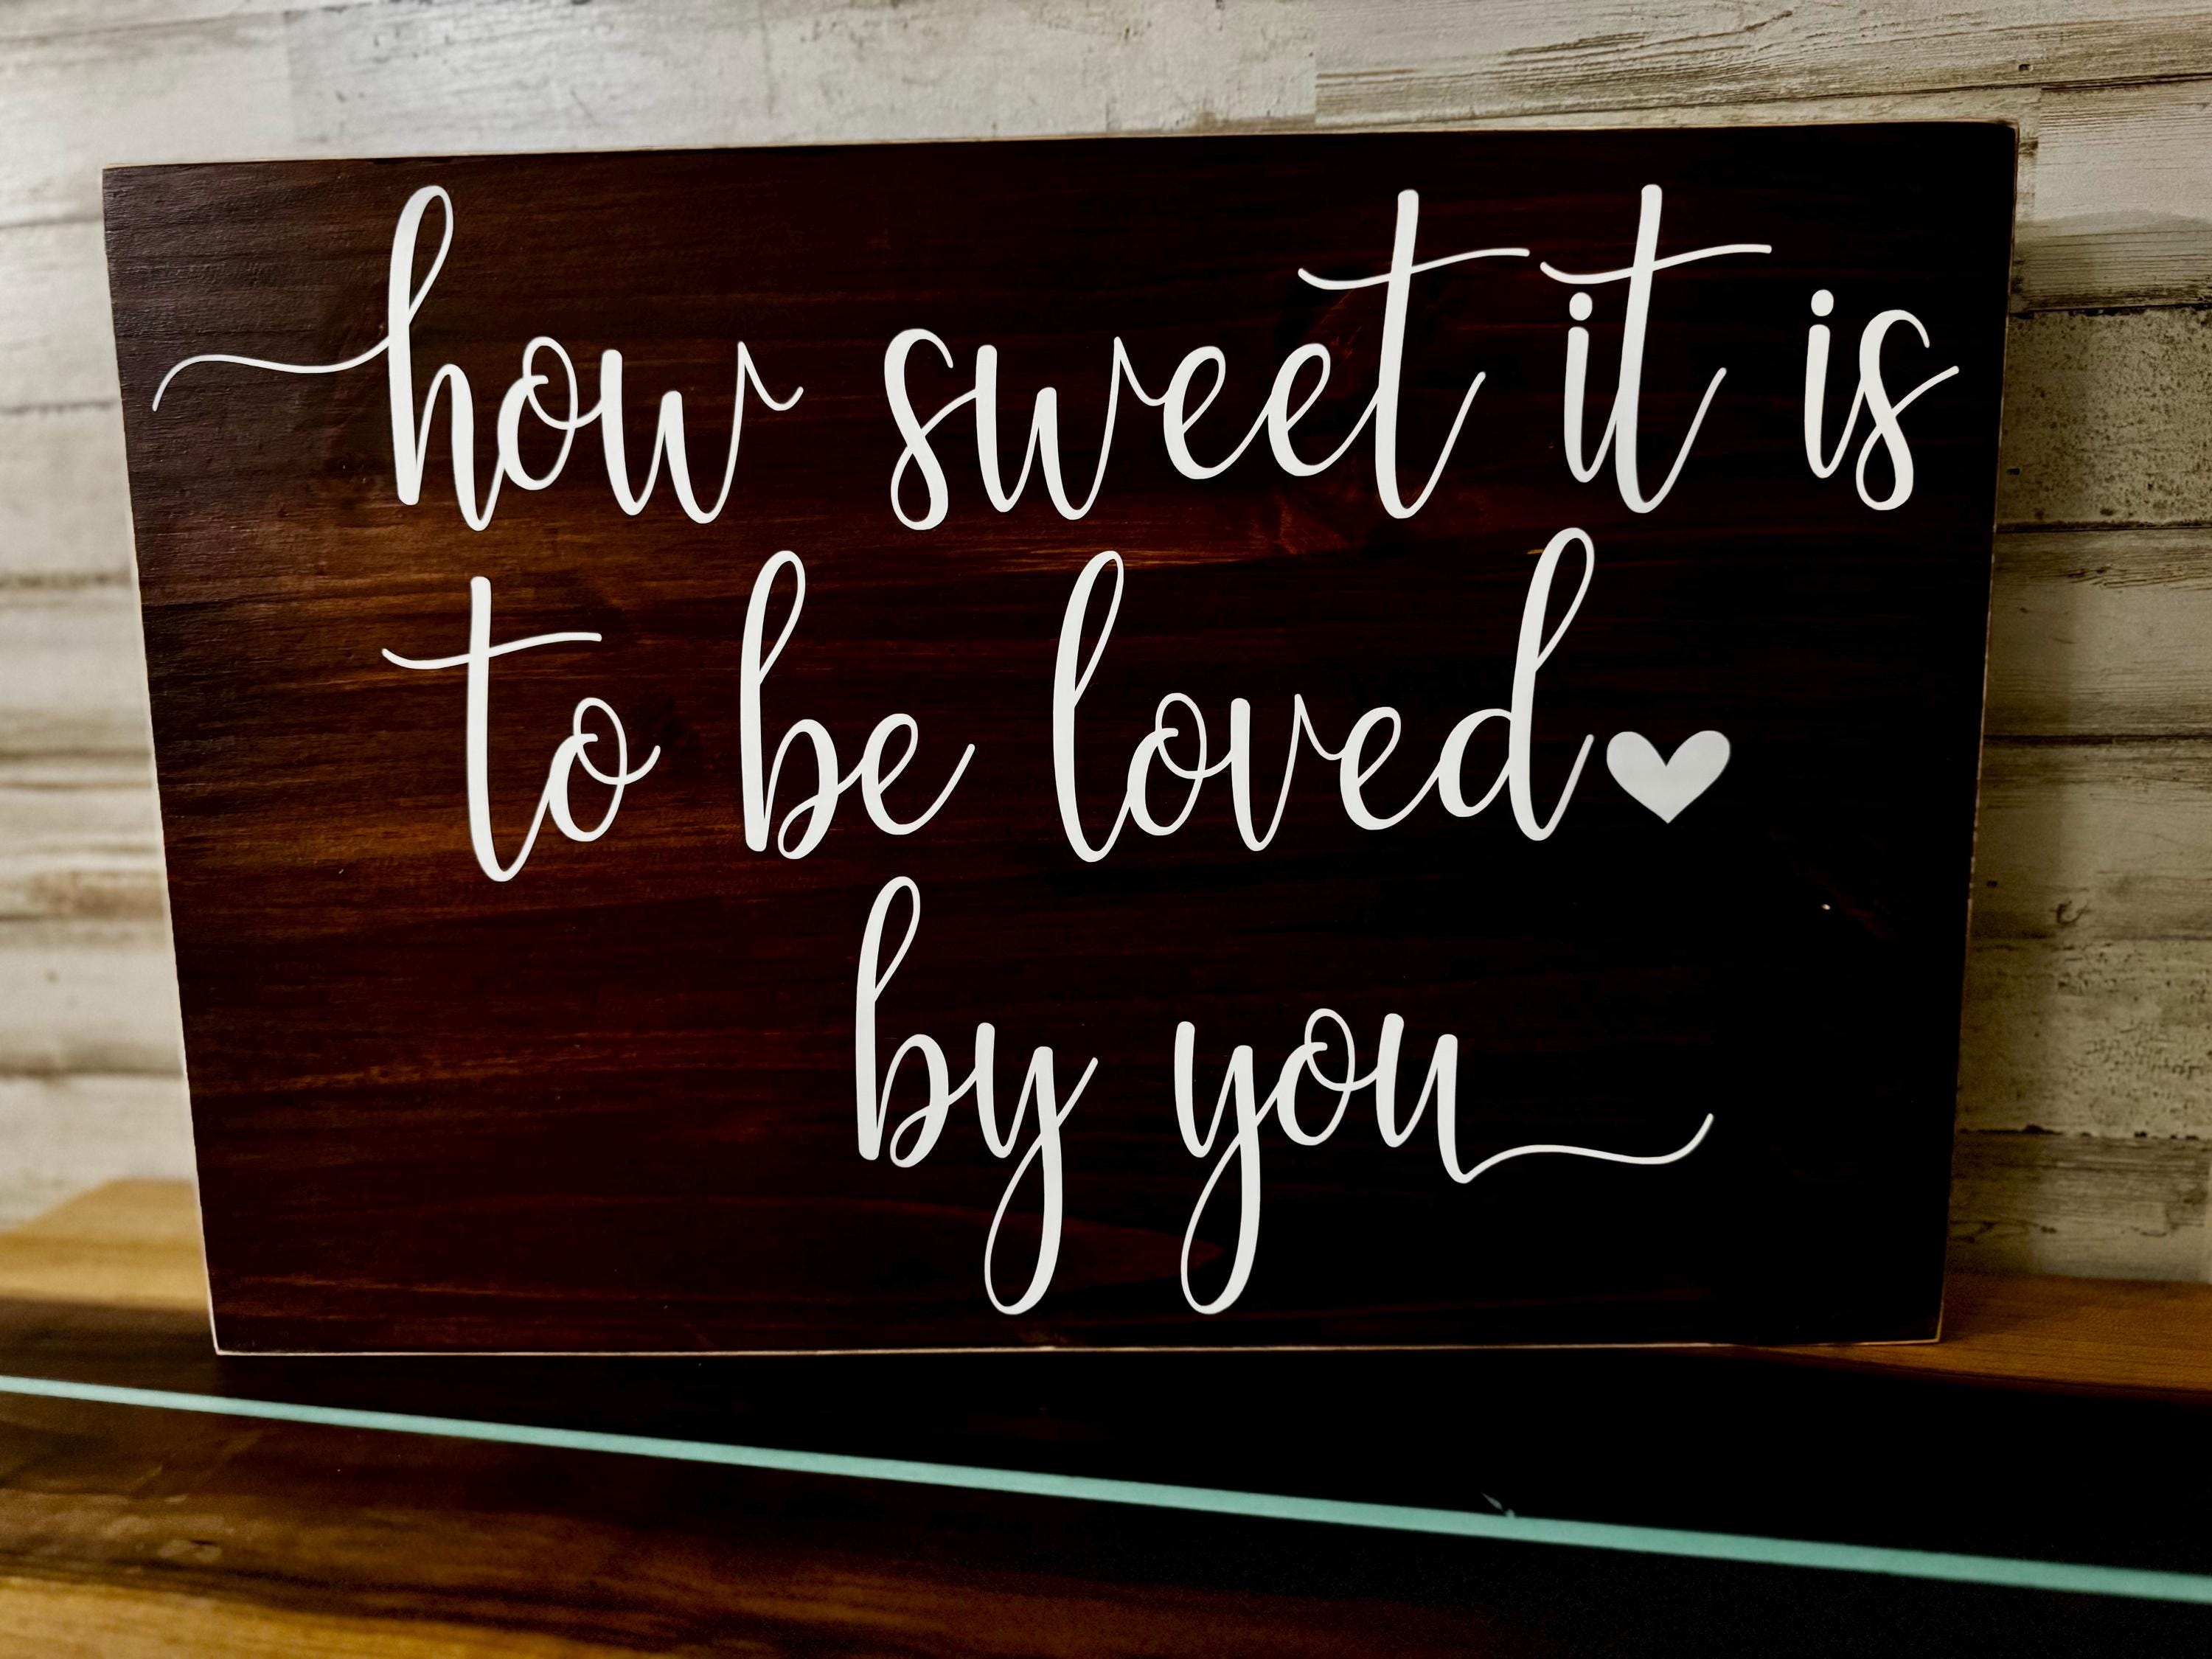 how sweet it is
to be loved
by you